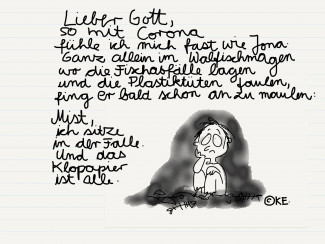 Lieber Gott,
so mit Corona
fühle ich mich fast wie Jona.
Ganz allein im Walfischmagen
wo die Fischabfälle lagen
und die Plastiktüten faulen,
fing er bald schon an zu maulen:
Mist,
ich sitze
in der Falle.
Und das
Klopapier
ist alle.
©KE.